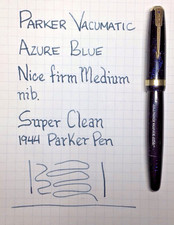 Parker Vacumatic
Azure Blue
Nice firm Medium
nib.
Super Clean
1944 Parker Pen